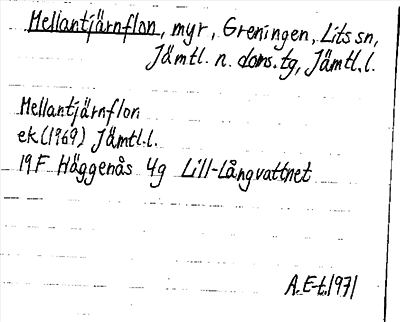 Mellantjärnflon, myr, Greningen, Lits sn,
Jämtl. n. doms.tg, Jämtl.l.
Mellantjärnflon
ek(1969) Jämtl.l.
19F Häggenås 4g Lill-Långvattnet
A.E-t.1971